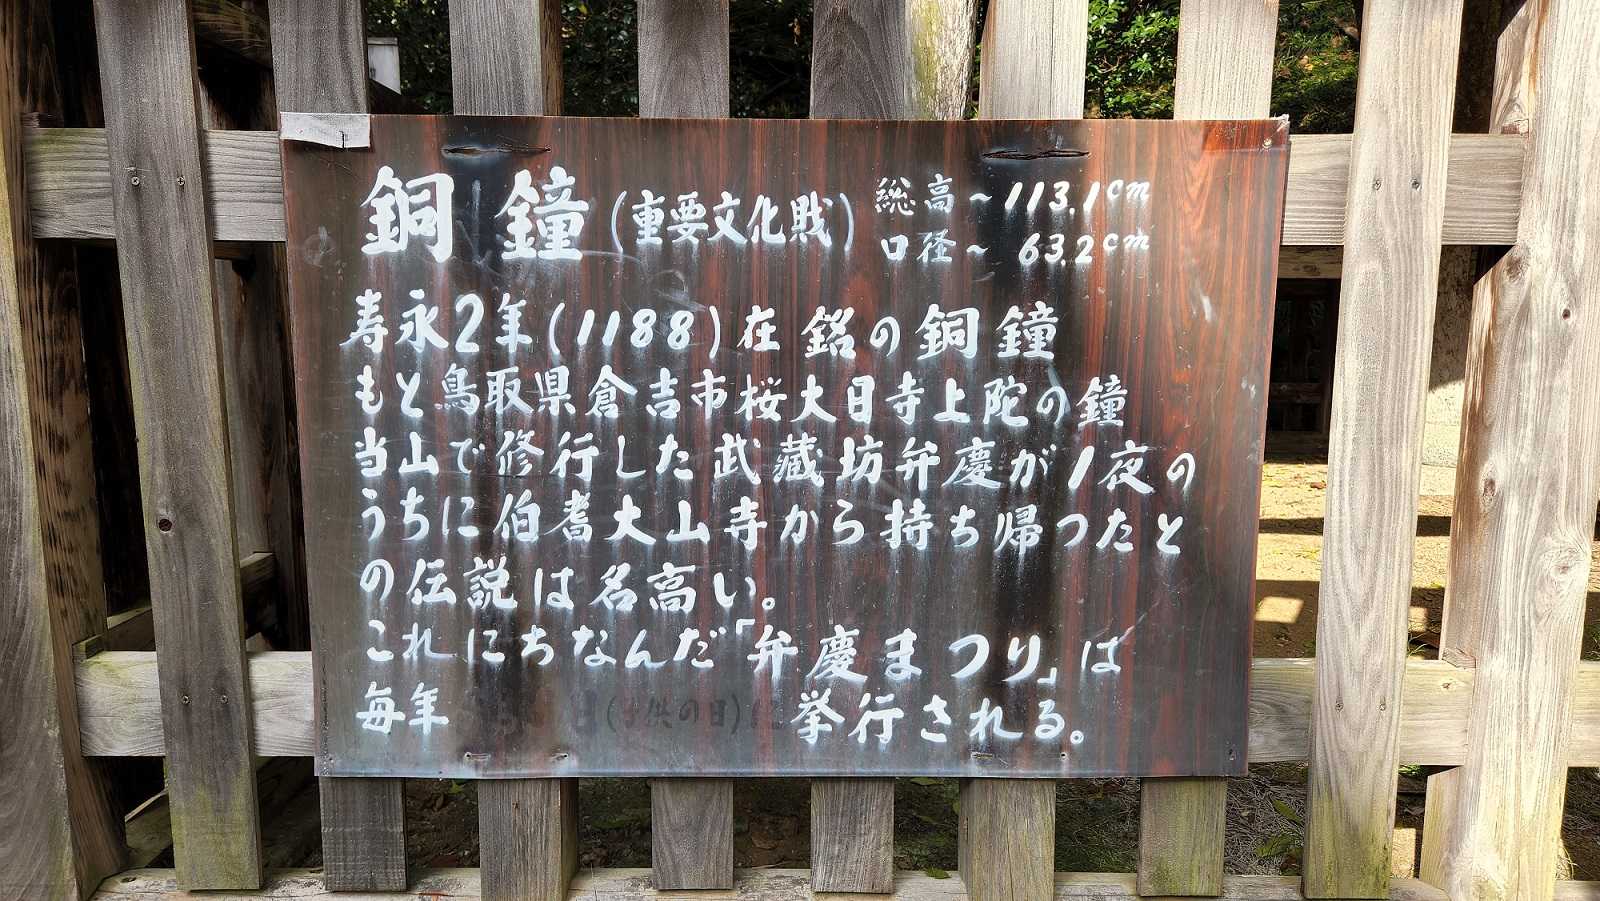 銅鐘(重要文化財)
総高~113.1cm
口径~63.2cm
寿永2年(1188)在銘の銅鐘
もと鳥取県倉吉市桜大日寺上陀の鐘
当山で修行した武蔵坊弁慶が1夜の
うちに伯耆大山寺から持ち帰つたと
の伝説は名高い。
これにちなんだ「弁慶まつり」は
毎年 日(子供の日)に 挙行される。